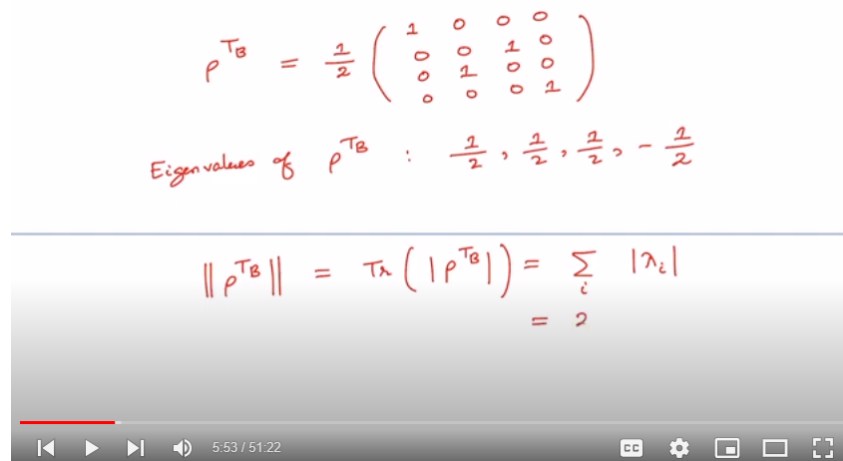 ρ^{T_B} = 1/2 ( 1 0 0 0
0 0 1 0
0 1 0 0
0 0 0 1 )
Eigenvalues of ρ^{T_B} : 1/2 , 1/2 , 1/2 , - 1/2
||ρ^{T_B}|| = Tr ( |ρ^{T_B}| ) = Σ_i |λ_i|
= 2
5:53 / 51:22 CC